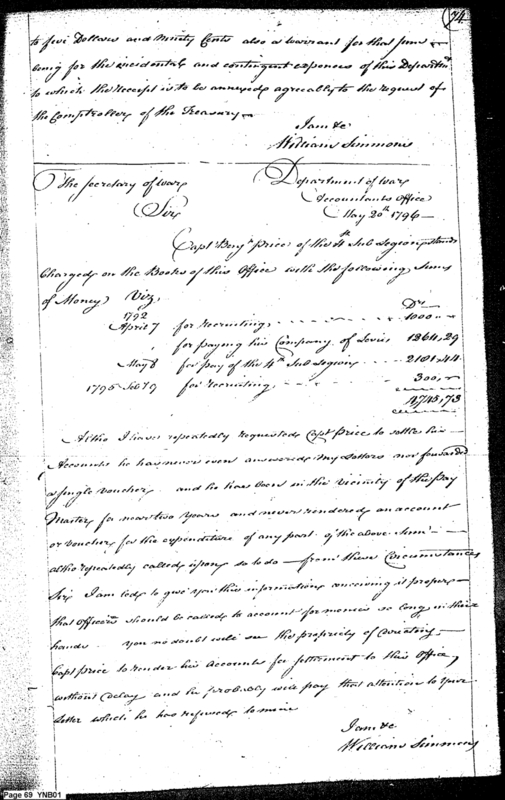 74
to five Dollars and Ninety Cents also a warrant for that sum
being for the incidental and contingent expences of this Departmt
to which the Receipt is to be annexed agreeably to the request of
the Comptroller of the Treasury
I am &c
William Simmons
The Secretary of War
Department of War
Accountants Office
Sir
May 20th 1796
Capt Benjn Price of the 4th Sub Legion stands
Charged on the Books of this Office with the following Sums
of Money Viz
Drs
1792
April 7 for recruiting 1000
for paying his Company of Levies 1264,29
May 8 for pay of the 4th Sub Legion 2181,44
1795 19 for recruiting 300,
4745,73
Altho I have repeatedly requested Capt Price to settle his
Accounts he has never even answered my Letters nor forwarded
a single voucher and he has been in the vicinity of the Pay
Master for near two Years and never rendered an account
or voucher for the expenditure of any part of the above Sum
altho repeatedly called upon so to do from these Circumstances
Sir I am led to give you this information conceiving it proper
that Officers should be called to account for monies so long in their
hands. You no doubt will see the propriety of directing
Capt Price to render his Accounts for settlement to this Office
without delay and he probably will pay that attention to your
Letter which he has refused to mine
I am &c
William Simmons
Page 69 YNB01